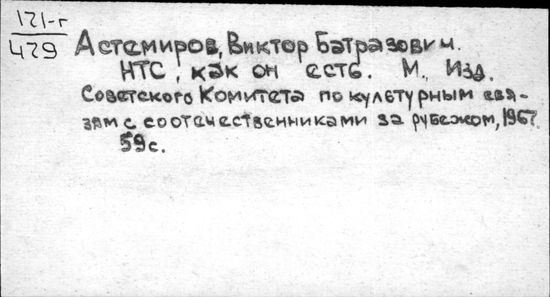 121-г
429
Астемиров, Виктор Батразович.
НТС, как он есть. М., Изд.
Советского Комитета по культурным свя-
зям с соотечественниками за рубежом, 1967.
59с.